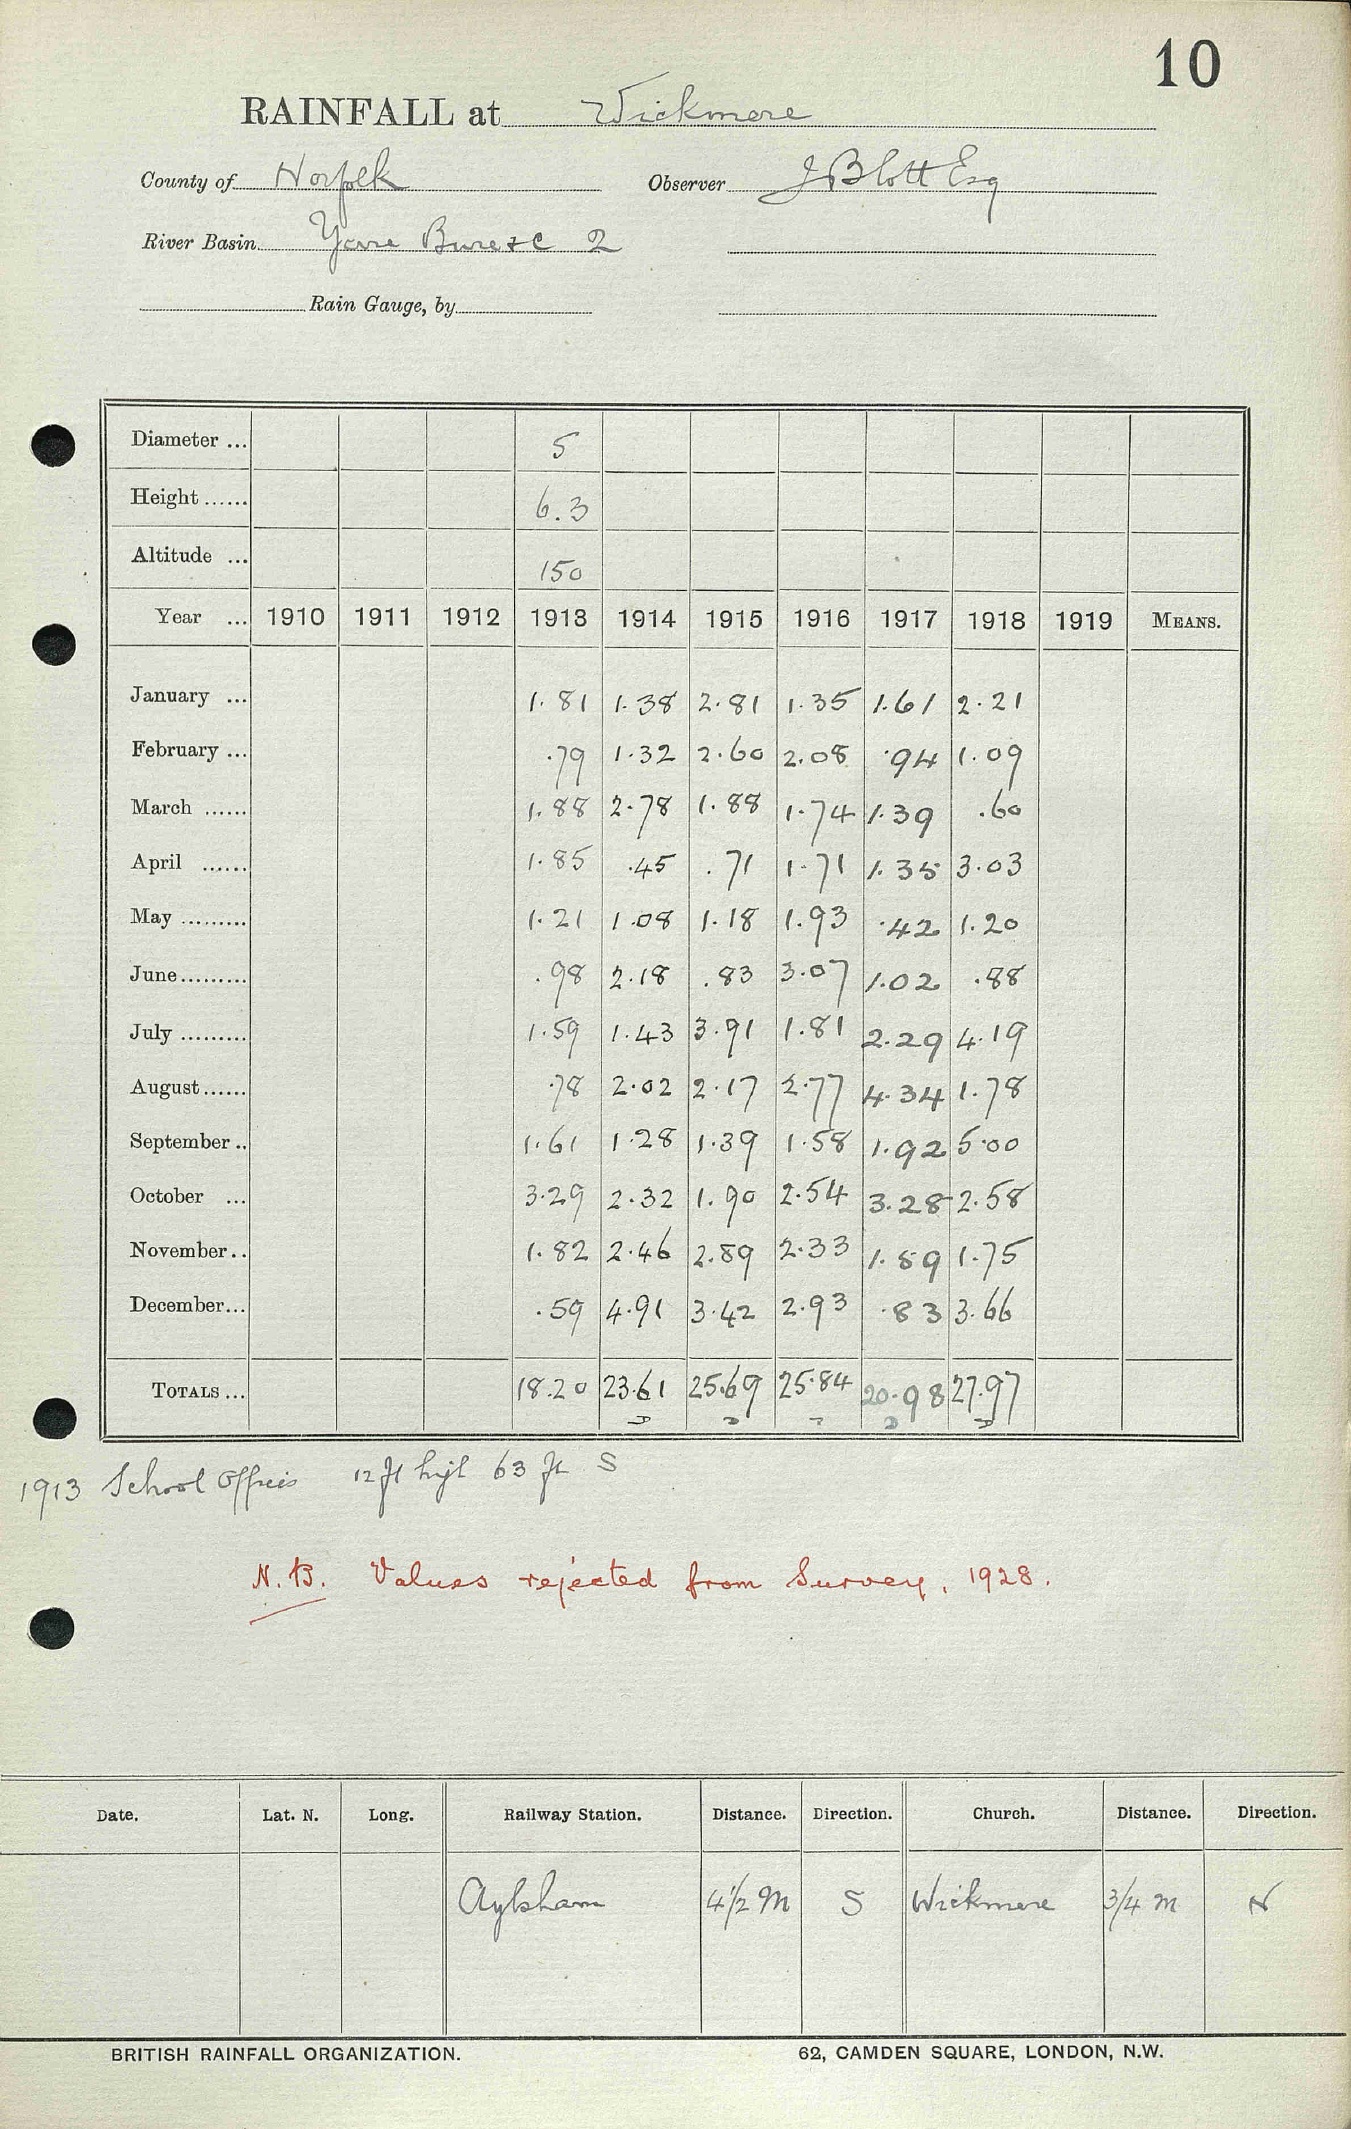 10
RAINFALL at Wickmere
County of Norfolk Observer J Blott Esq
River Basin Yare Bure &c 2
Rain Gauge, by
Diameter ... 5
Height ...... 6.3
Altitude ... 150
Year ... 1910 1911 1912 1913 1914 1915 1916 1917 1918 1919 MEANS.
January ... 1.81 1.38 2.81 1.35 1.61 2.21
February ... .79 1.32 2.60 2.08 .94 1.09
March ...... 1.88 2.78 1.88 1.74 1.39 .60
April ...... 1.85 .45 .71 1.71 1.35 3.03
May ......... 1.21 1.08 1.18 1.93 .42 1.20
June......... .98 2.18 .83 3.07 1.02 .88
July ......... 1.59 1.43 3.91 1.81 2.29 4.19
August...... .78 2.02 2.17 2.77 4.34 1.78
September .. 1.61 1.28 1.39 1.58 1.92 5.00
October ... 3.29 2.32 1.90 2.54 3.28 2.58
November.. 1.82 2.46 2.89 2.33 1.59 1.75
December... .59 4.91 3.42 2.93 .83 3.66
TOTALS ... 18.20 23.61 25.69 25.84 20.98 27.97
1913 School 12 ft 63 ft S
N.B. Values rejected from Survey, 1928.
Date. Lat. N. Long. Railway Station. Distance. Direction. Church. Distance. Direction.
Aylsham 4 1/2 M S Wickmere 3/4 m N
BRITISH RAINFALL ORGANIZATION. 62, CAMDEN SQUARE, LONDON, N.W.